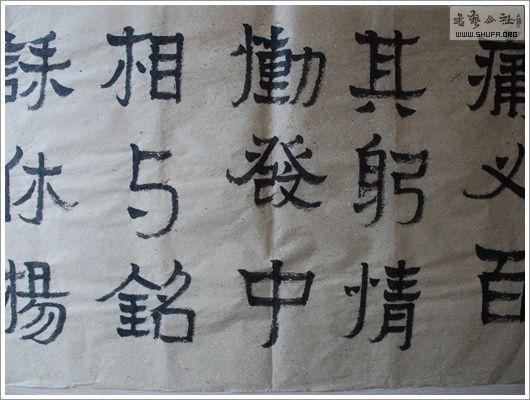 書藝公社
WWW.SHUFA.ORG
痛百
其躬情
慟發中
相与銘
誄休楊